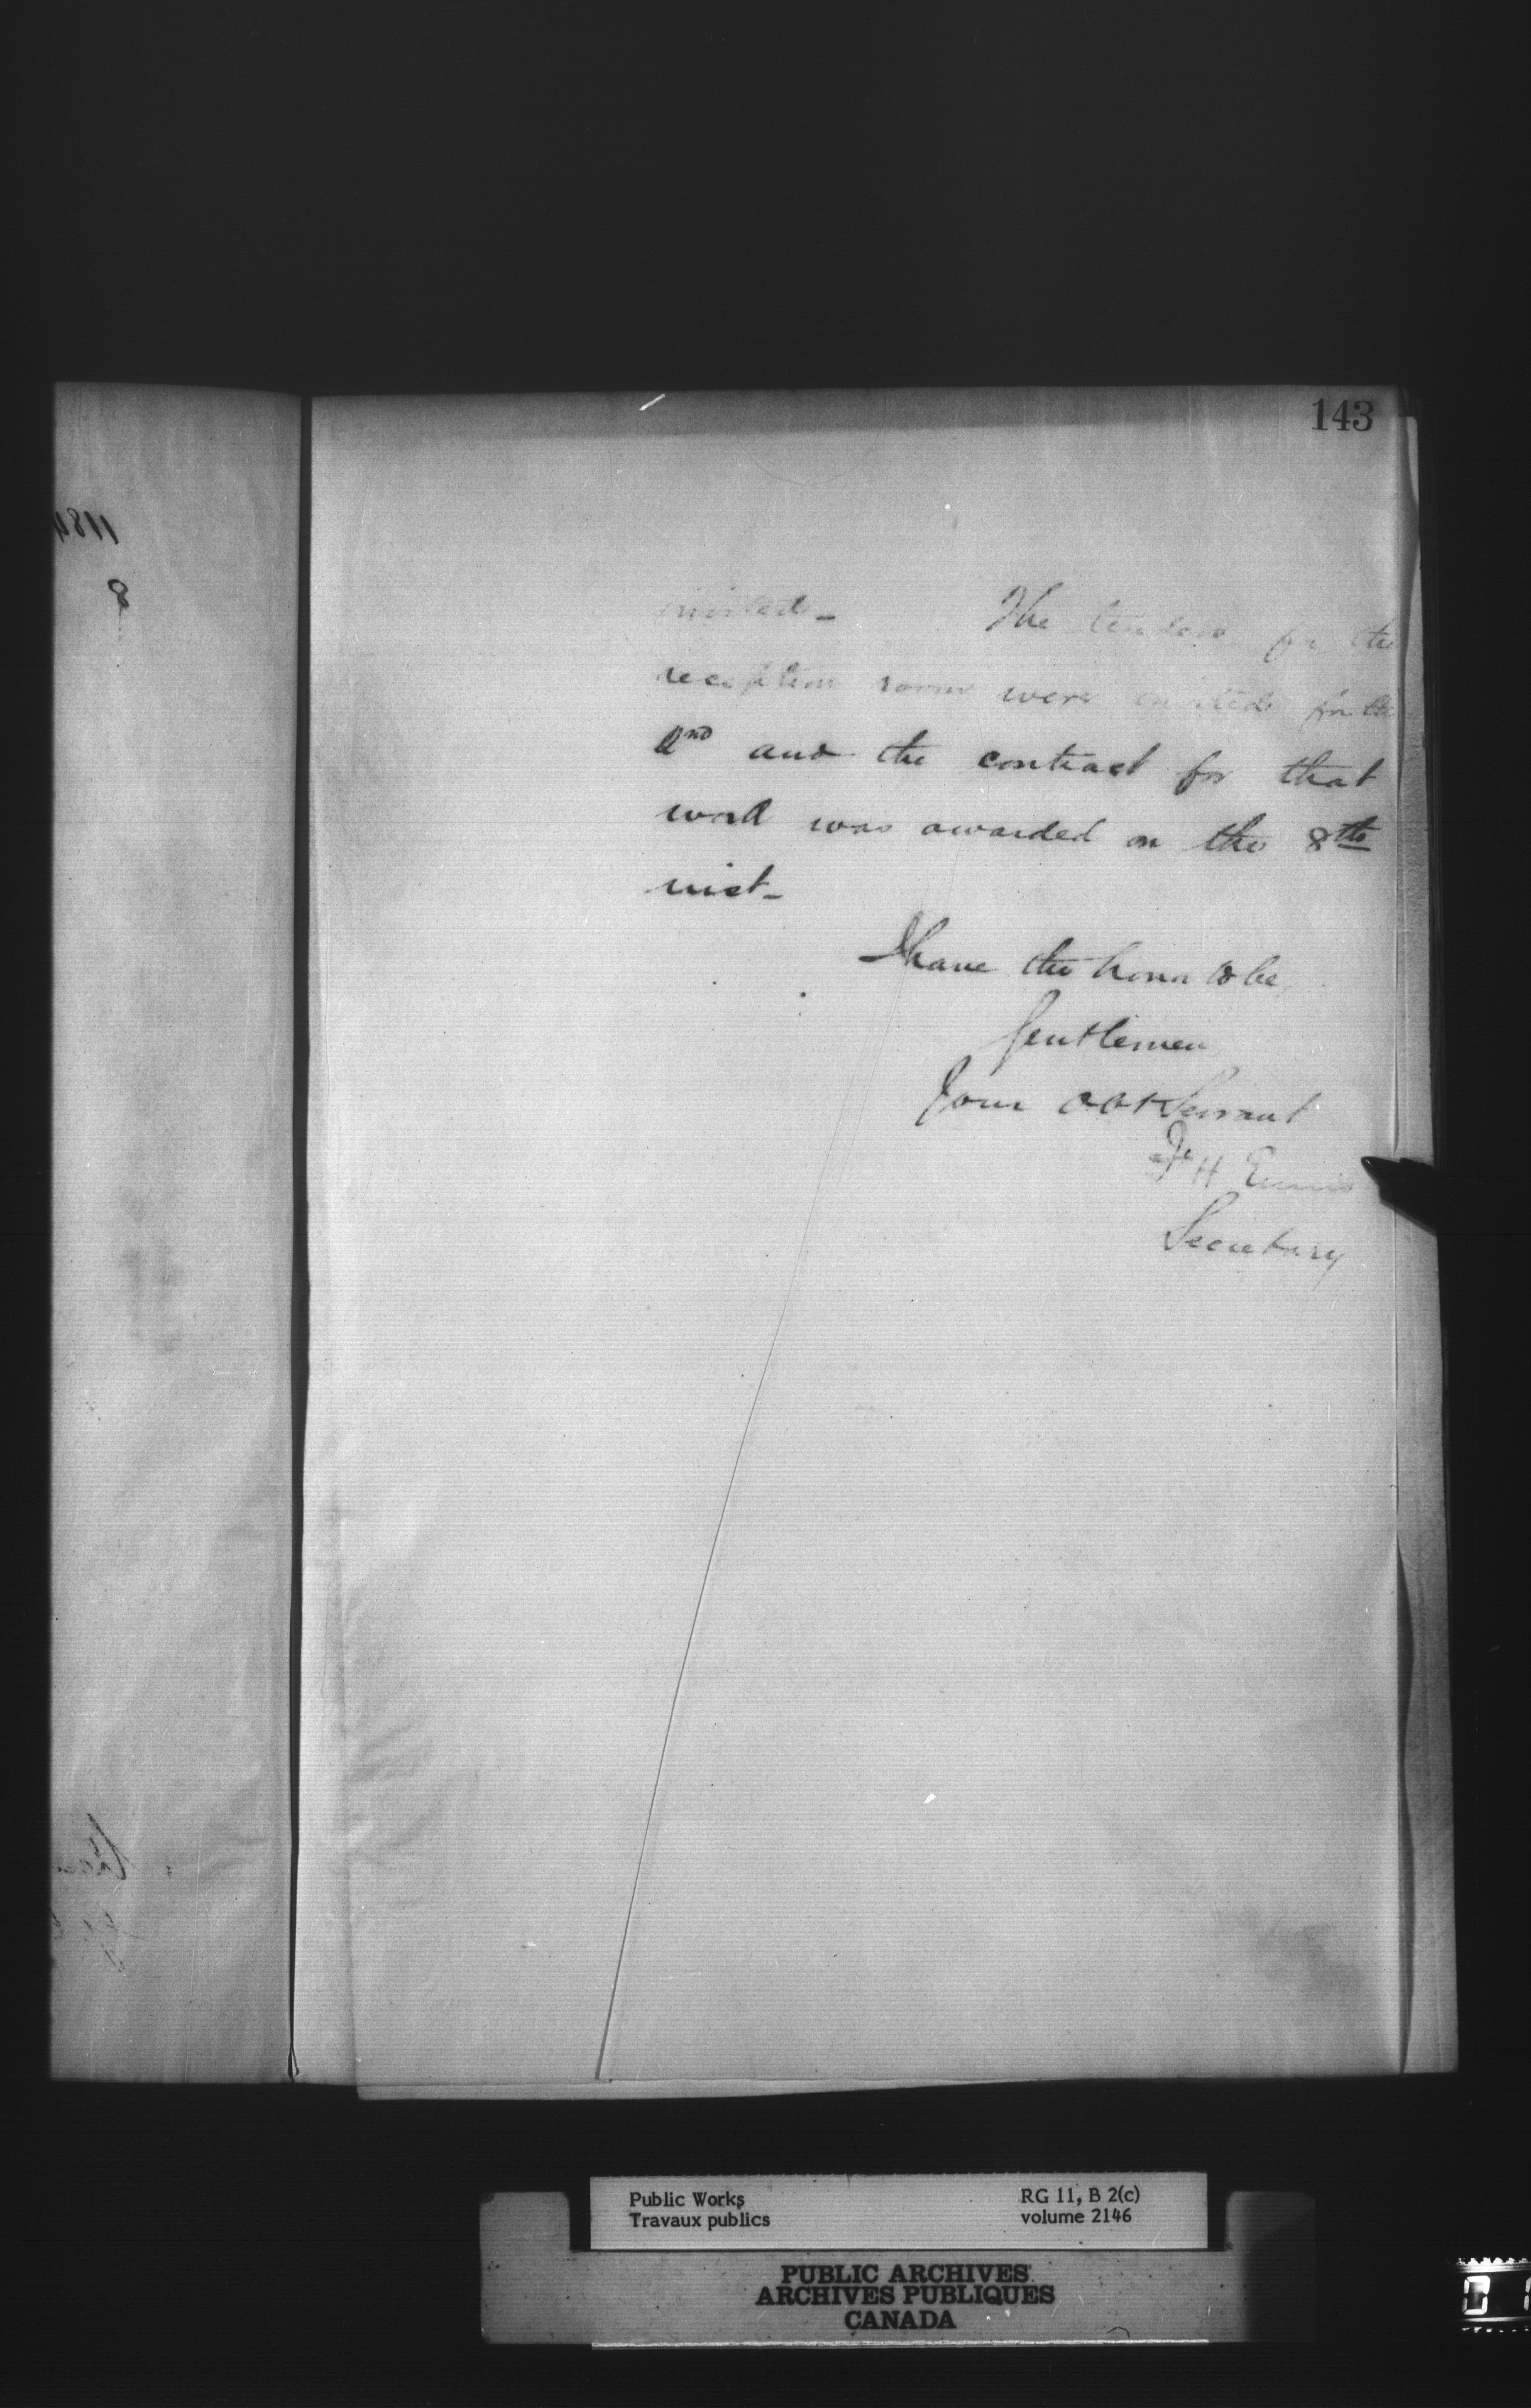 143
invited - The tenders for the
reception room were invited for the
2nd and the contract for that
work was awarded on the 8th
inst -
I have the honor to be,
Gentlemen
Your obt Servant
F. H. Ennis
Secretary
Public Works
Travaux publics
RG 11, B 2(c)
volume 2146
PUBLIC ARCHIVES
ARCHIVES PUBLIQUES
CANADA